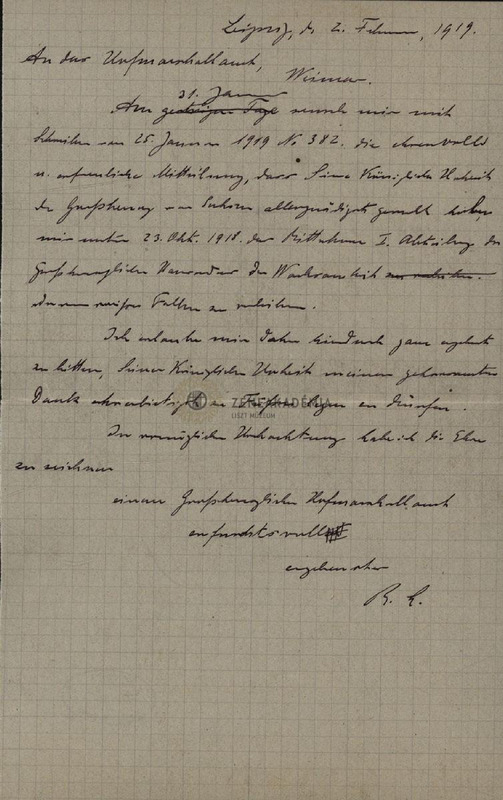 Leipzig, d. 2. Februar, 1919.
An das Hofmarschallamt,
Weimar.
31. Januar
Am gestrigen Tage wurde mir mit
Schreiben vom 25. Januar 1919 No 382. die ehrenvolle
u. erfreuliche Mitteilung, dass Seine Königliche Hoheit
der Großherzog von Sachsen allergnädigst geruht haben
mir unter 23. Okt. 1918. das Ritterkreuz I. Abteilung des
Großherzoglichen Hausordens der Wachsamkeit zu verleihen.
oder vom weißen Falken zu verleihen.
Ich erlaube mir daher hierdurch ganz ergebenst
zu bitten, Seiner Königlichen Hoheit meinen gehorsamsten
Dank ehrerbietigst zu Füßen legen zu dürfen.
ZENEAKADÉMIA
LISZT MÚZEUM
In vorzüglicher Hochachtung habe ich die Ehre
zu zeichnen
einem Großherzoglichen Hofmarschallamt
ehrfurchtsvoll
ergebenster